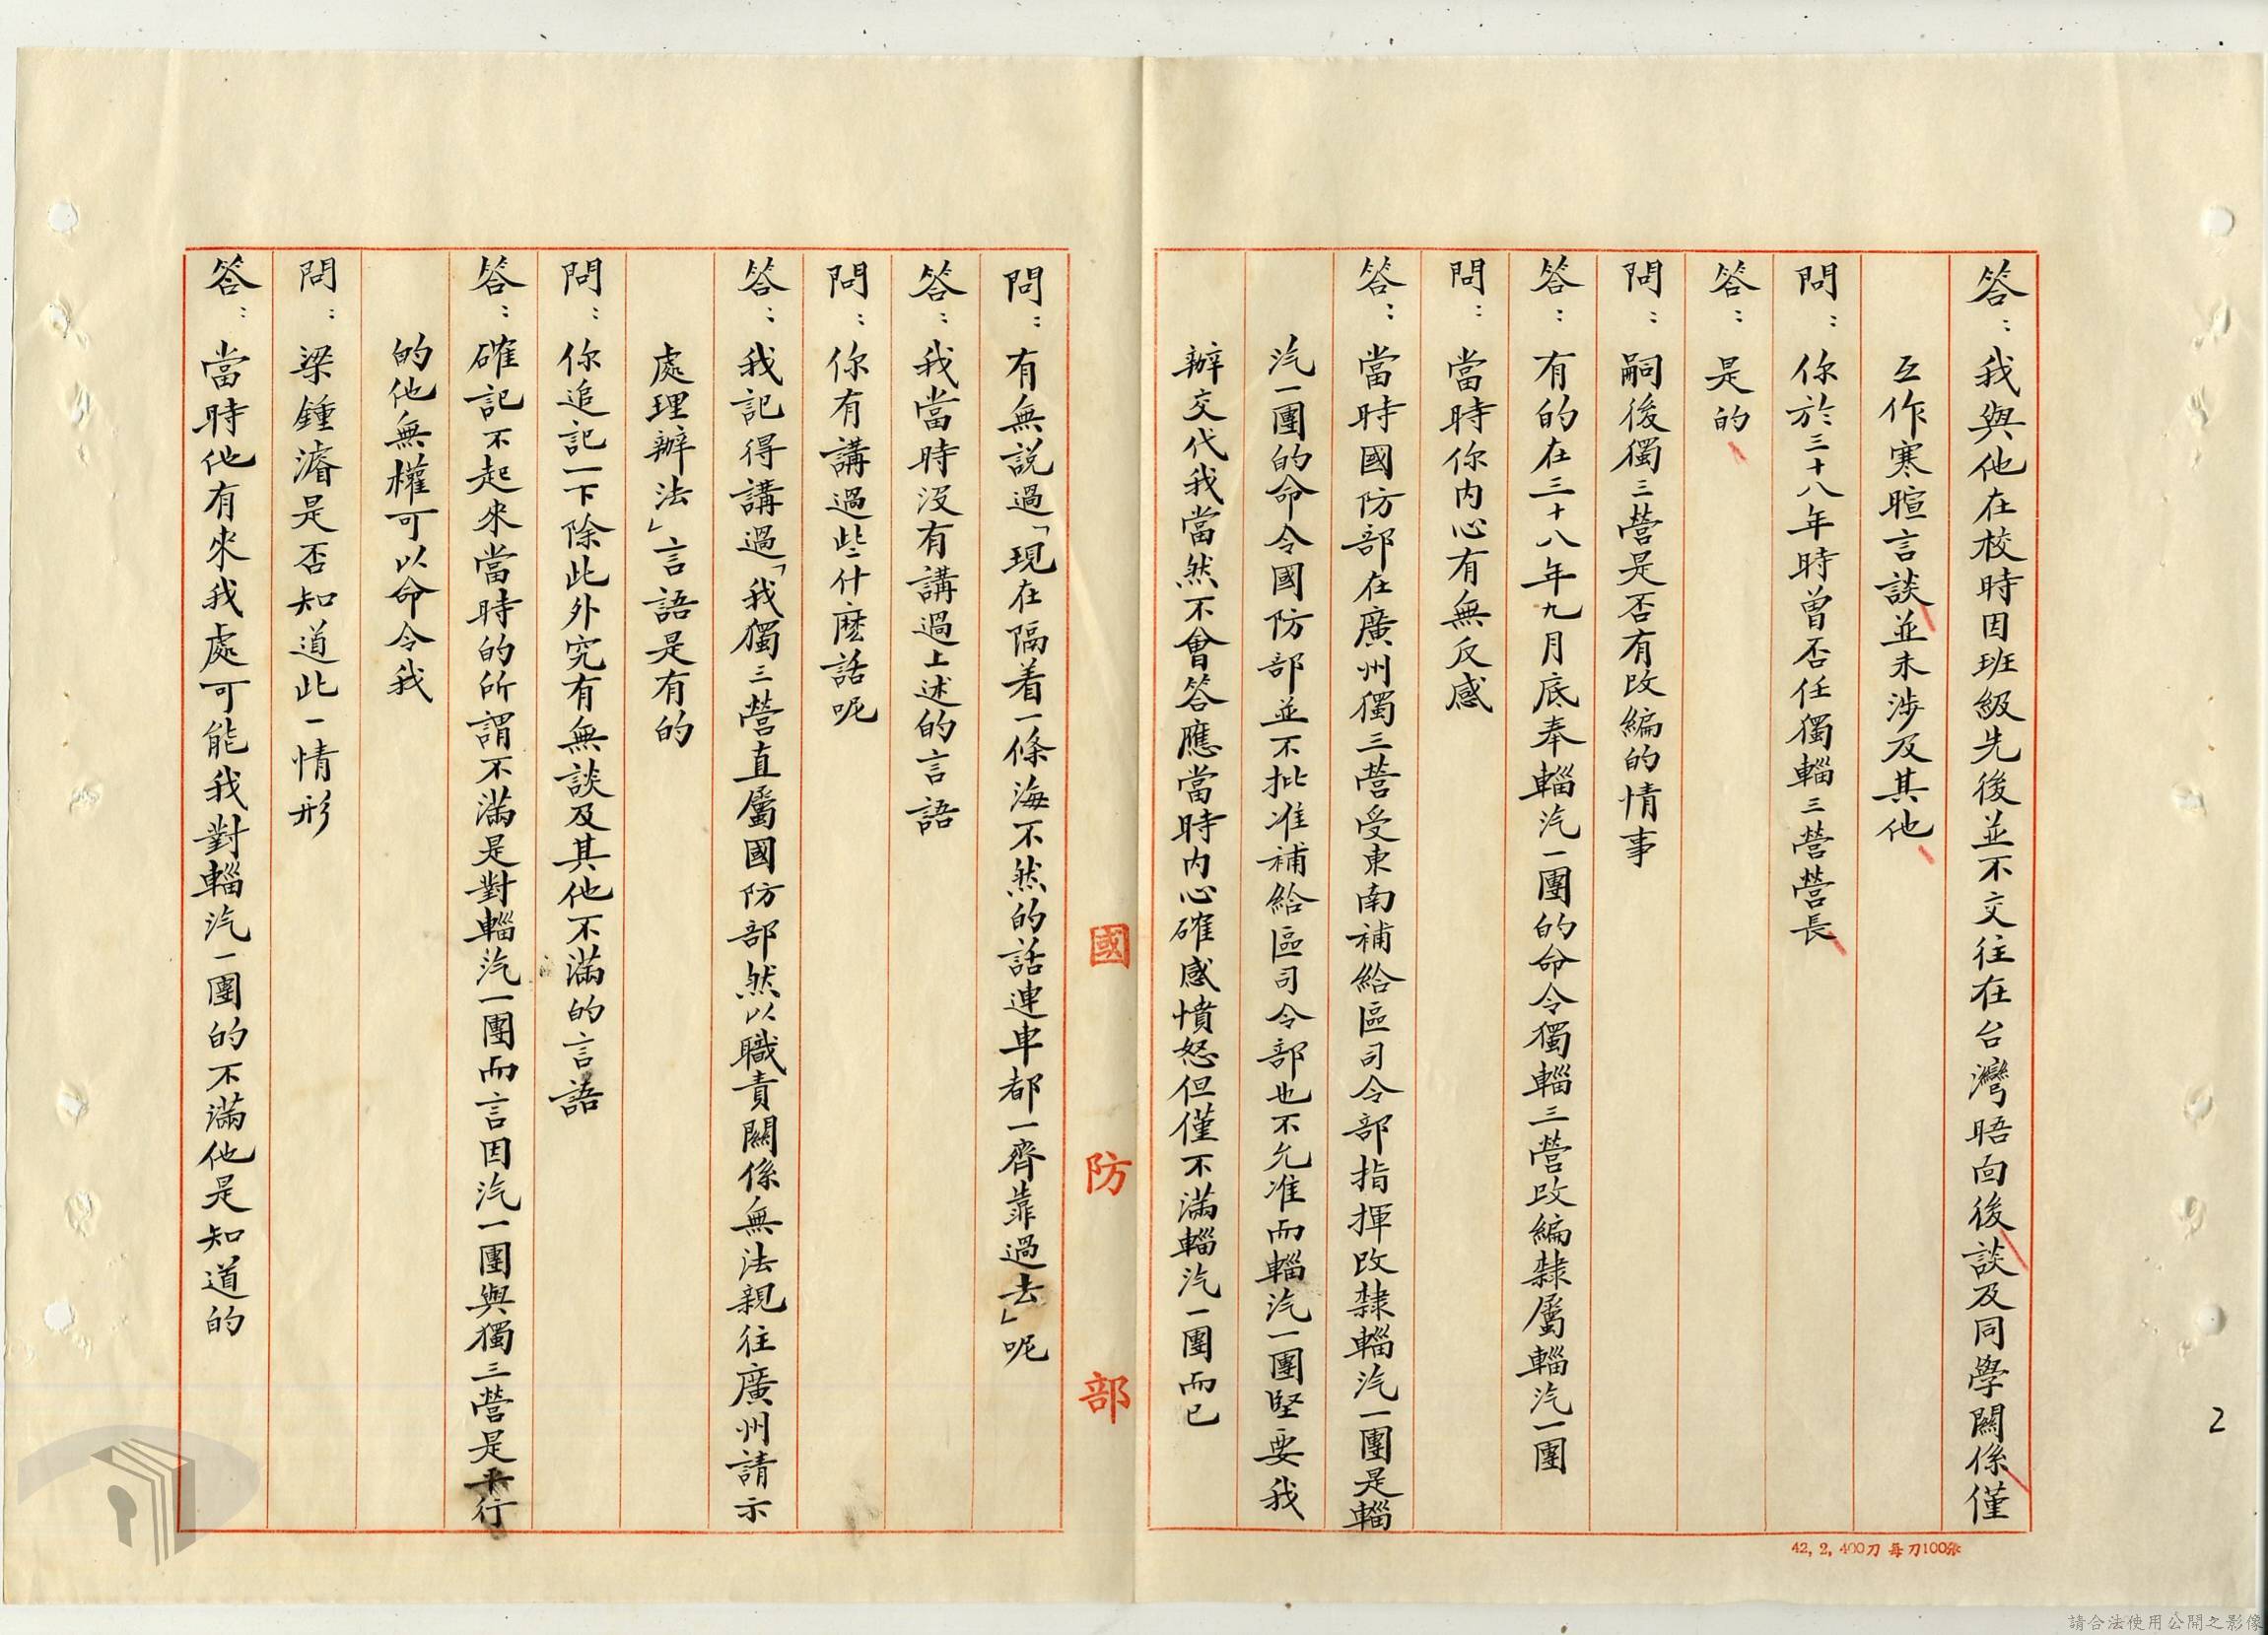 答：我與他在校時因班級先後並不交往在台灣晤面後談及同學關係僅
互作寒暄言談並未涉及其他
問：你於三十八年時曾否任獨輜三營營長
答：是的
問：嗣後獨三營是否有改編的情事
答：有的在三十八年九月底奉輜汽一團的命令獨輜三營改編隸屬輜汽一團
問：當時你內心有無反感
答：當時國防部在廣州獨三營受東南補給區司令部指揮改隸輜汽一團是輜
汽一團的命令國防部並不批准補給區司令部也不允准而輜汽一團堅要我
辦交代我當然不會答應當時內心確感憤怒但僅不滿輜汽一團而已
國防部
問：有無說過「現在隔着一條海不然的話連車都一齊靠過去」呢
答：我當時沒有講過上述的言語
問：你有講過些什麼話呢
答：我記得講過「我獨三營直屬國防部然以職責關係無法親往廣州請示
處理辦法」言語是有的
問：你追記一下除此外究有無談及其他不滿的言語
答：確記不起來當時的所謂不滿是對輜汽一團而言因汽一團與獨三營是平行
的他無權可以命令我
問：梁鍾濬是否知道此一情形
答：當時他有來我處可能我對輜汽一團的不滿他是知道的
42, 2, 400刀 每刀100張
2
請合法使用公開之影像